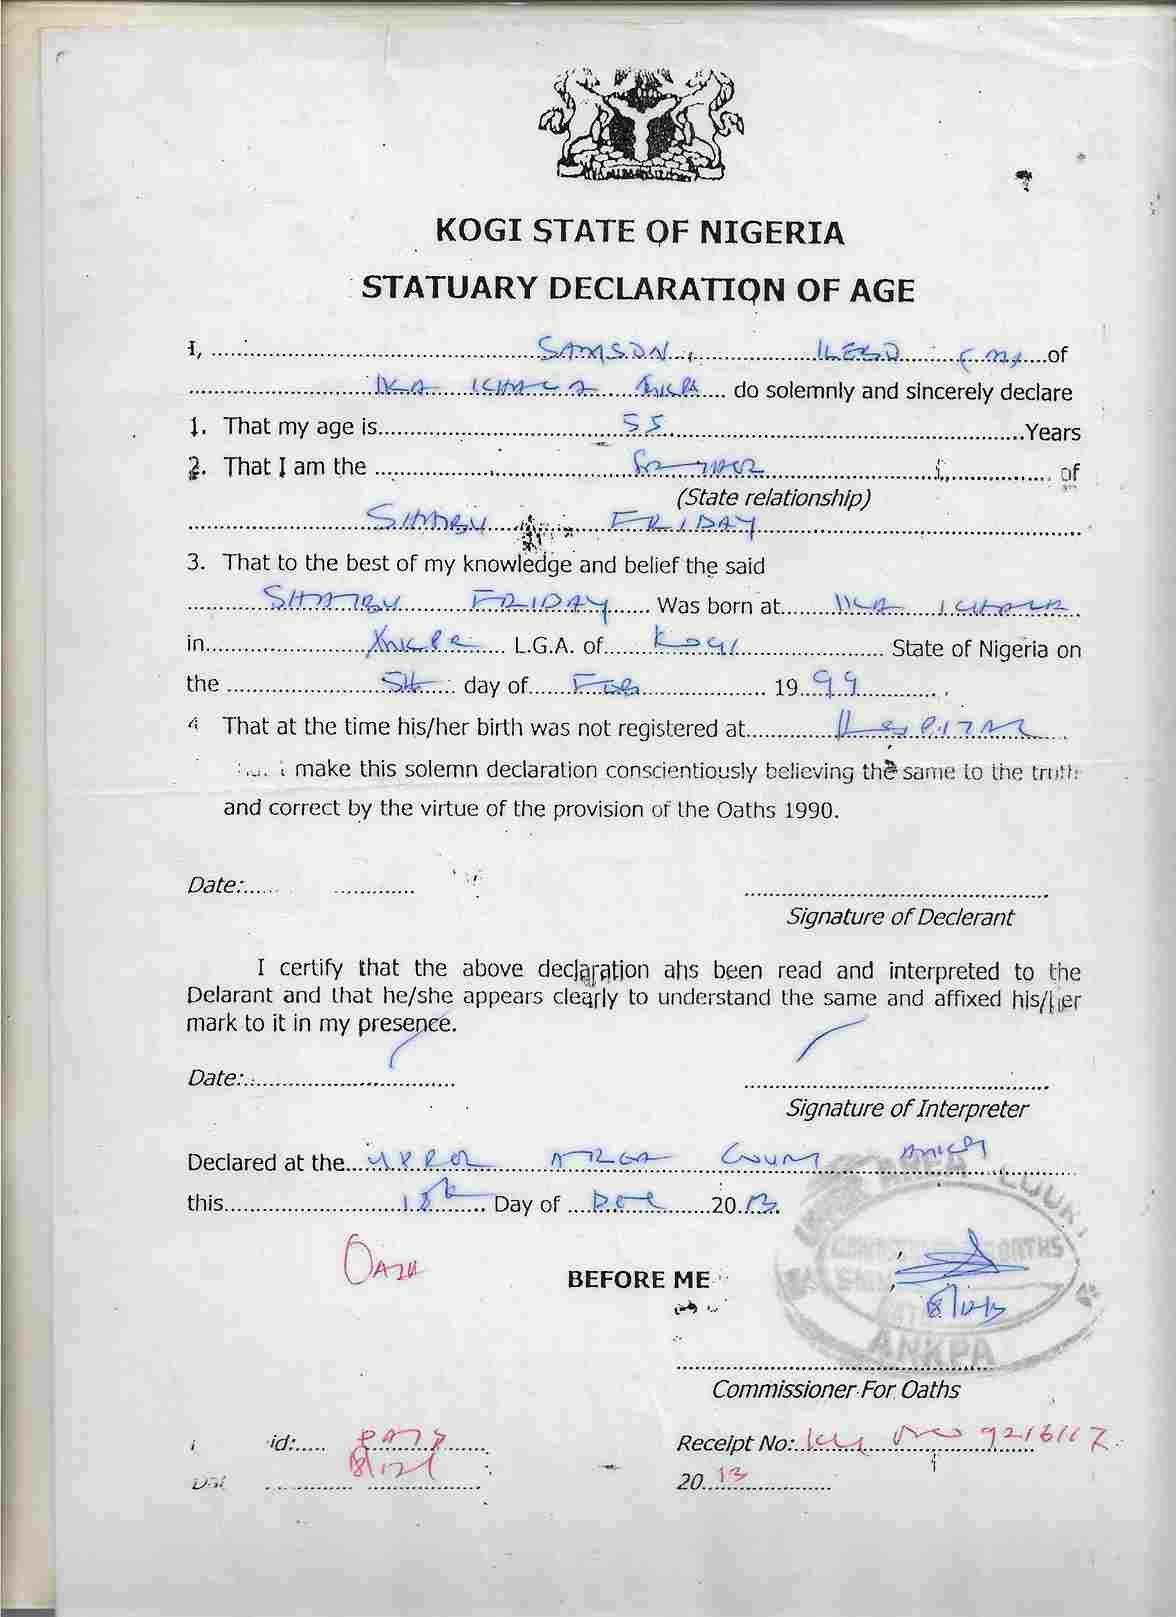 KOGI STATE OF NIGERIA
STATUARY DECLARATION OF AGE
I, SAMSON, of
IKA ICHALA ANKPA do solemnly and sincerely declare
1. That my age is 55 Years
2. That I am the of
(State relationship)
SHAIBU FRIDAY
3. That to the best of my knowledge and belief the said
SHAIBU FRIDAY Was born at IKA ICHALA
in ANKPA L.G.A. of KOGI State of Nigeria on
the 5th day of FEB 1999
4 That at the time his/her birth was not registered at HOSPITAL
make this solemn declaration conscientiously believing the same to the truth
and correct by the virtue of the provision of the Oaths 1990.
Date:
Signature of Declerant
I certify that the above declaration ahs been read and interpreted to the
Delarant and that he/she appears clearly to understand the same and affixed his/her
mark to it in my presence.
Date:
Signature of Interpreter
Declared at the UPPER AREA COURT ANKPA
this 18th Day of DEC 2013
AREA COURT
OATHS
ANKPA
BEFORE ME
Commissioner For Oaths
id:
Receipt No: 9216117
2013